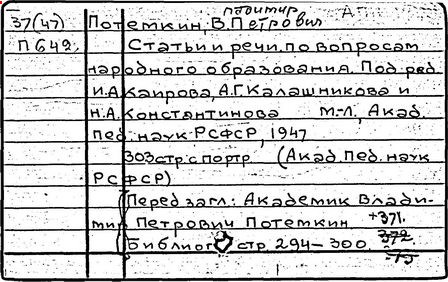 37(47) Потемкин, В.Петрович ладимир А
П649. Статьи и речи по вопросам
народного образования. Под ред.
И.А Каирова, А.Г.Калашникова и
Н.А.Константинова М.-Л., Акад.
пед. наук РСФСР, 1947
303стр. с портр (Акад. Пед. наук
РСФСР)
Перед загл.: Академик Влади-
мир Петрович Потемкин +371.
Библиог стр. 294-300. 372